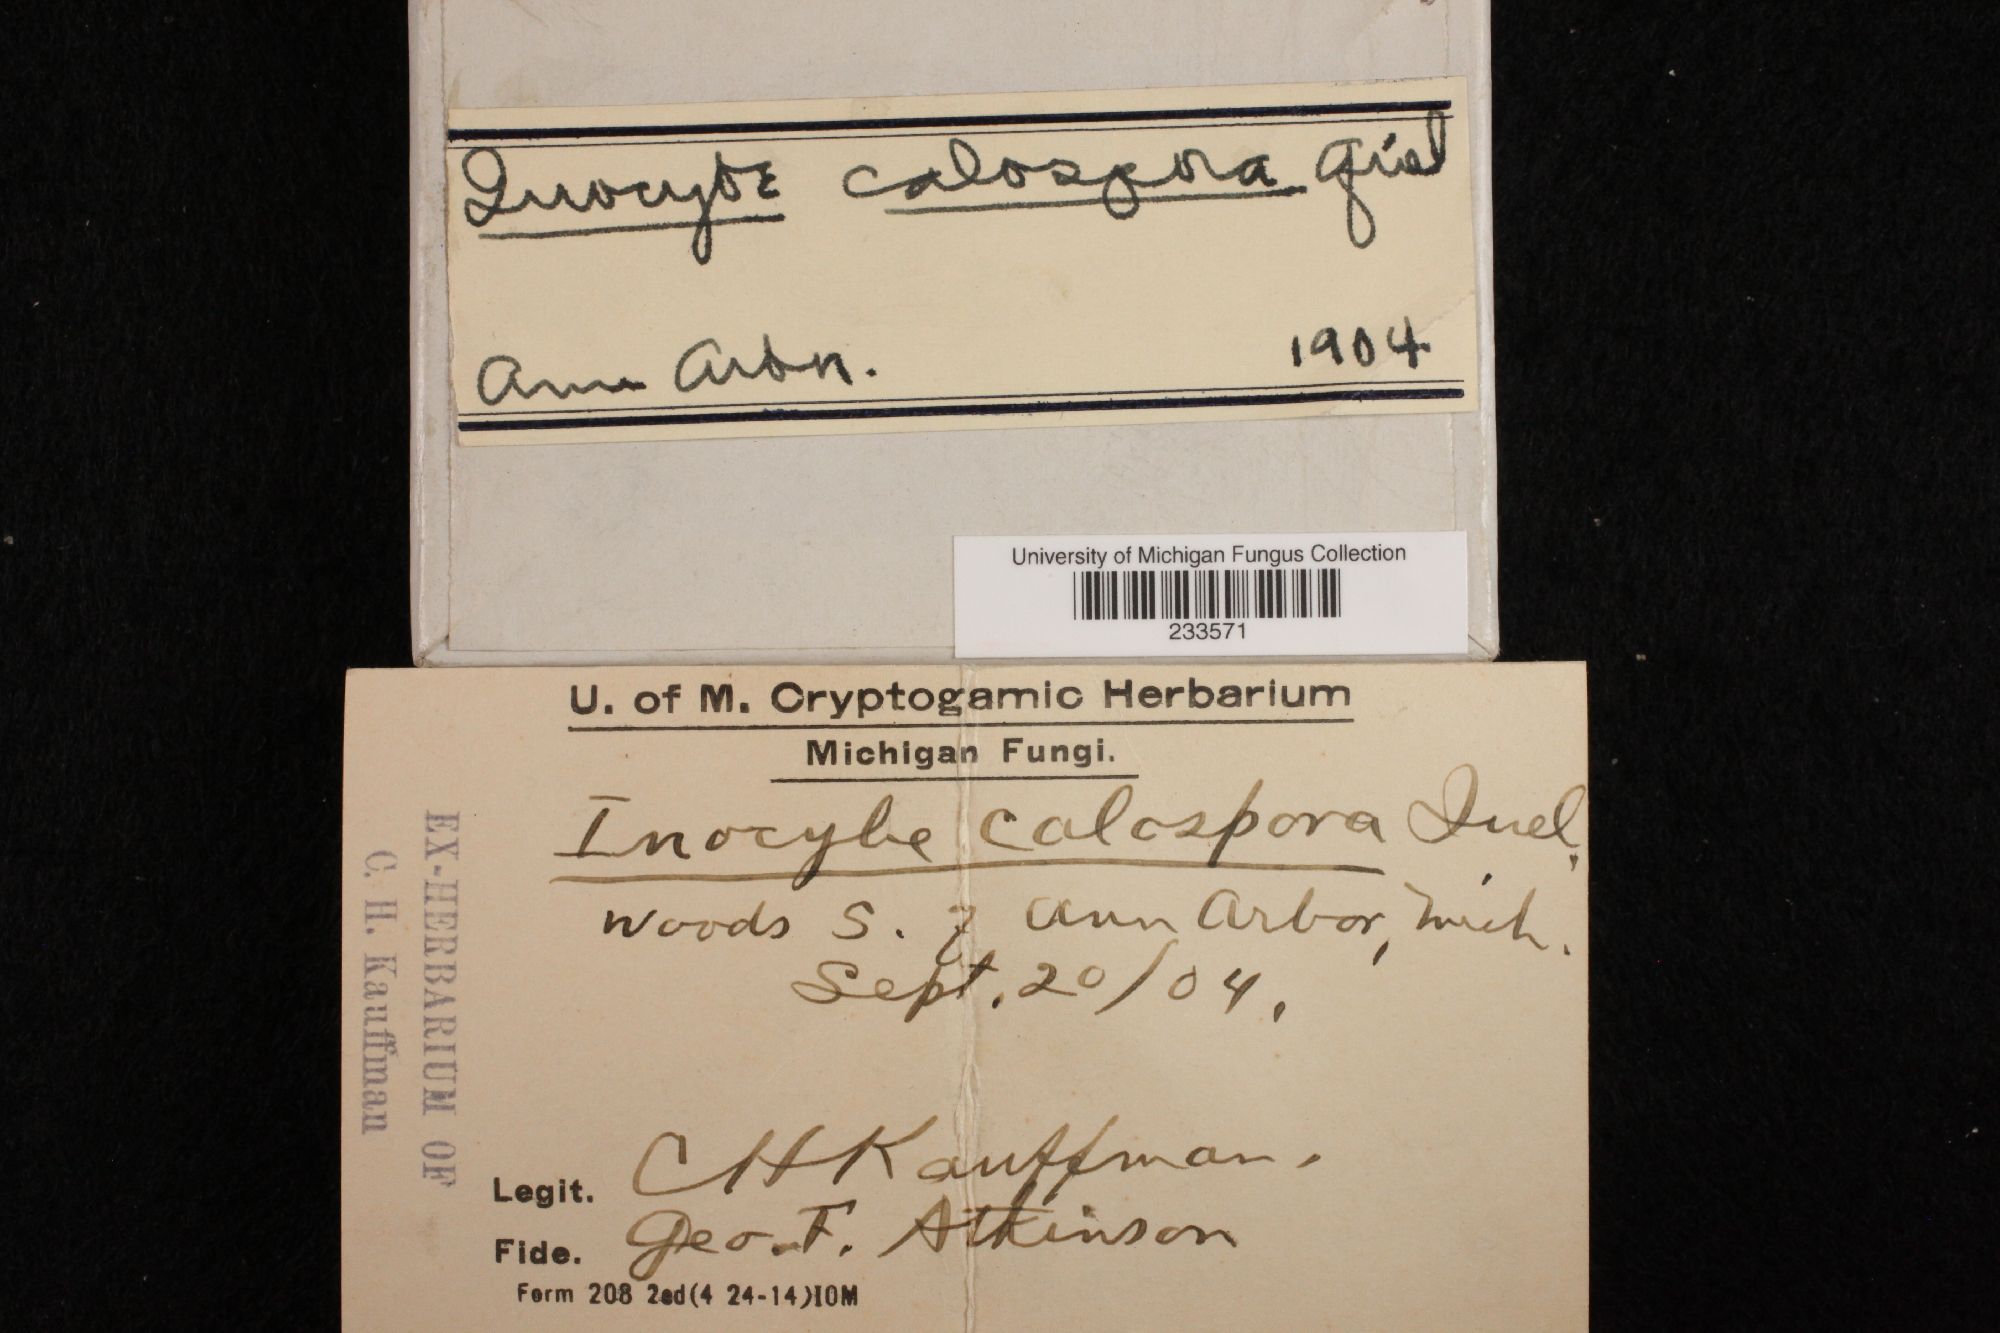 Inocybe calospora Quel
Ann Arbor. 1904
University of Michigan Fungus Collection
233571
U. of M. Cryptogamic Herbarium
Michigan Fungi.
Inocybe calospora Quel.
Woods S. of Ann Arbor, Mich.
Sept. 20/04.
EX-HERBARIUM OF
C. H. Kauffman
Legit. CHKauffman.
Fide. Geo. F. Atkinson
Form 208 2ed(4 24-14)10M